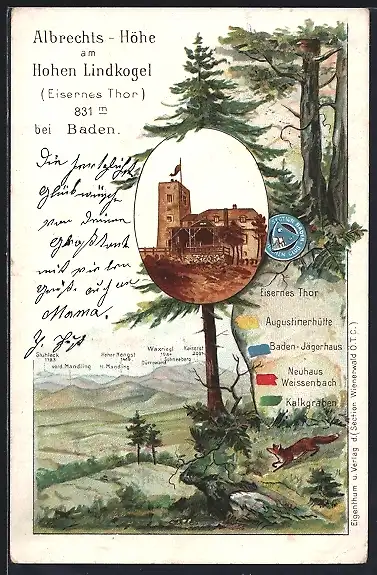 Albrechts - Höhe
am
Hohen Lindkogel
(Eisernes Thor)
831 m
bei Baden.
Die herzlichsten
Glückwünsche
von deiner
Großtant
mit vielen
Grüß. auch an
Mama.
Eisernes Thor
Augustinerhütte
Baden-Jägerhaus
Neuhaus
Weissenbach
Kalkgraben
Waxriegl
Kaiserst
Schneeberg
Dürrewand
Hoher Hengst
H. Mandling
vord. Mandling
Eigenthum u. Verlag d. (Section Wienerwald Ö.T.C.)